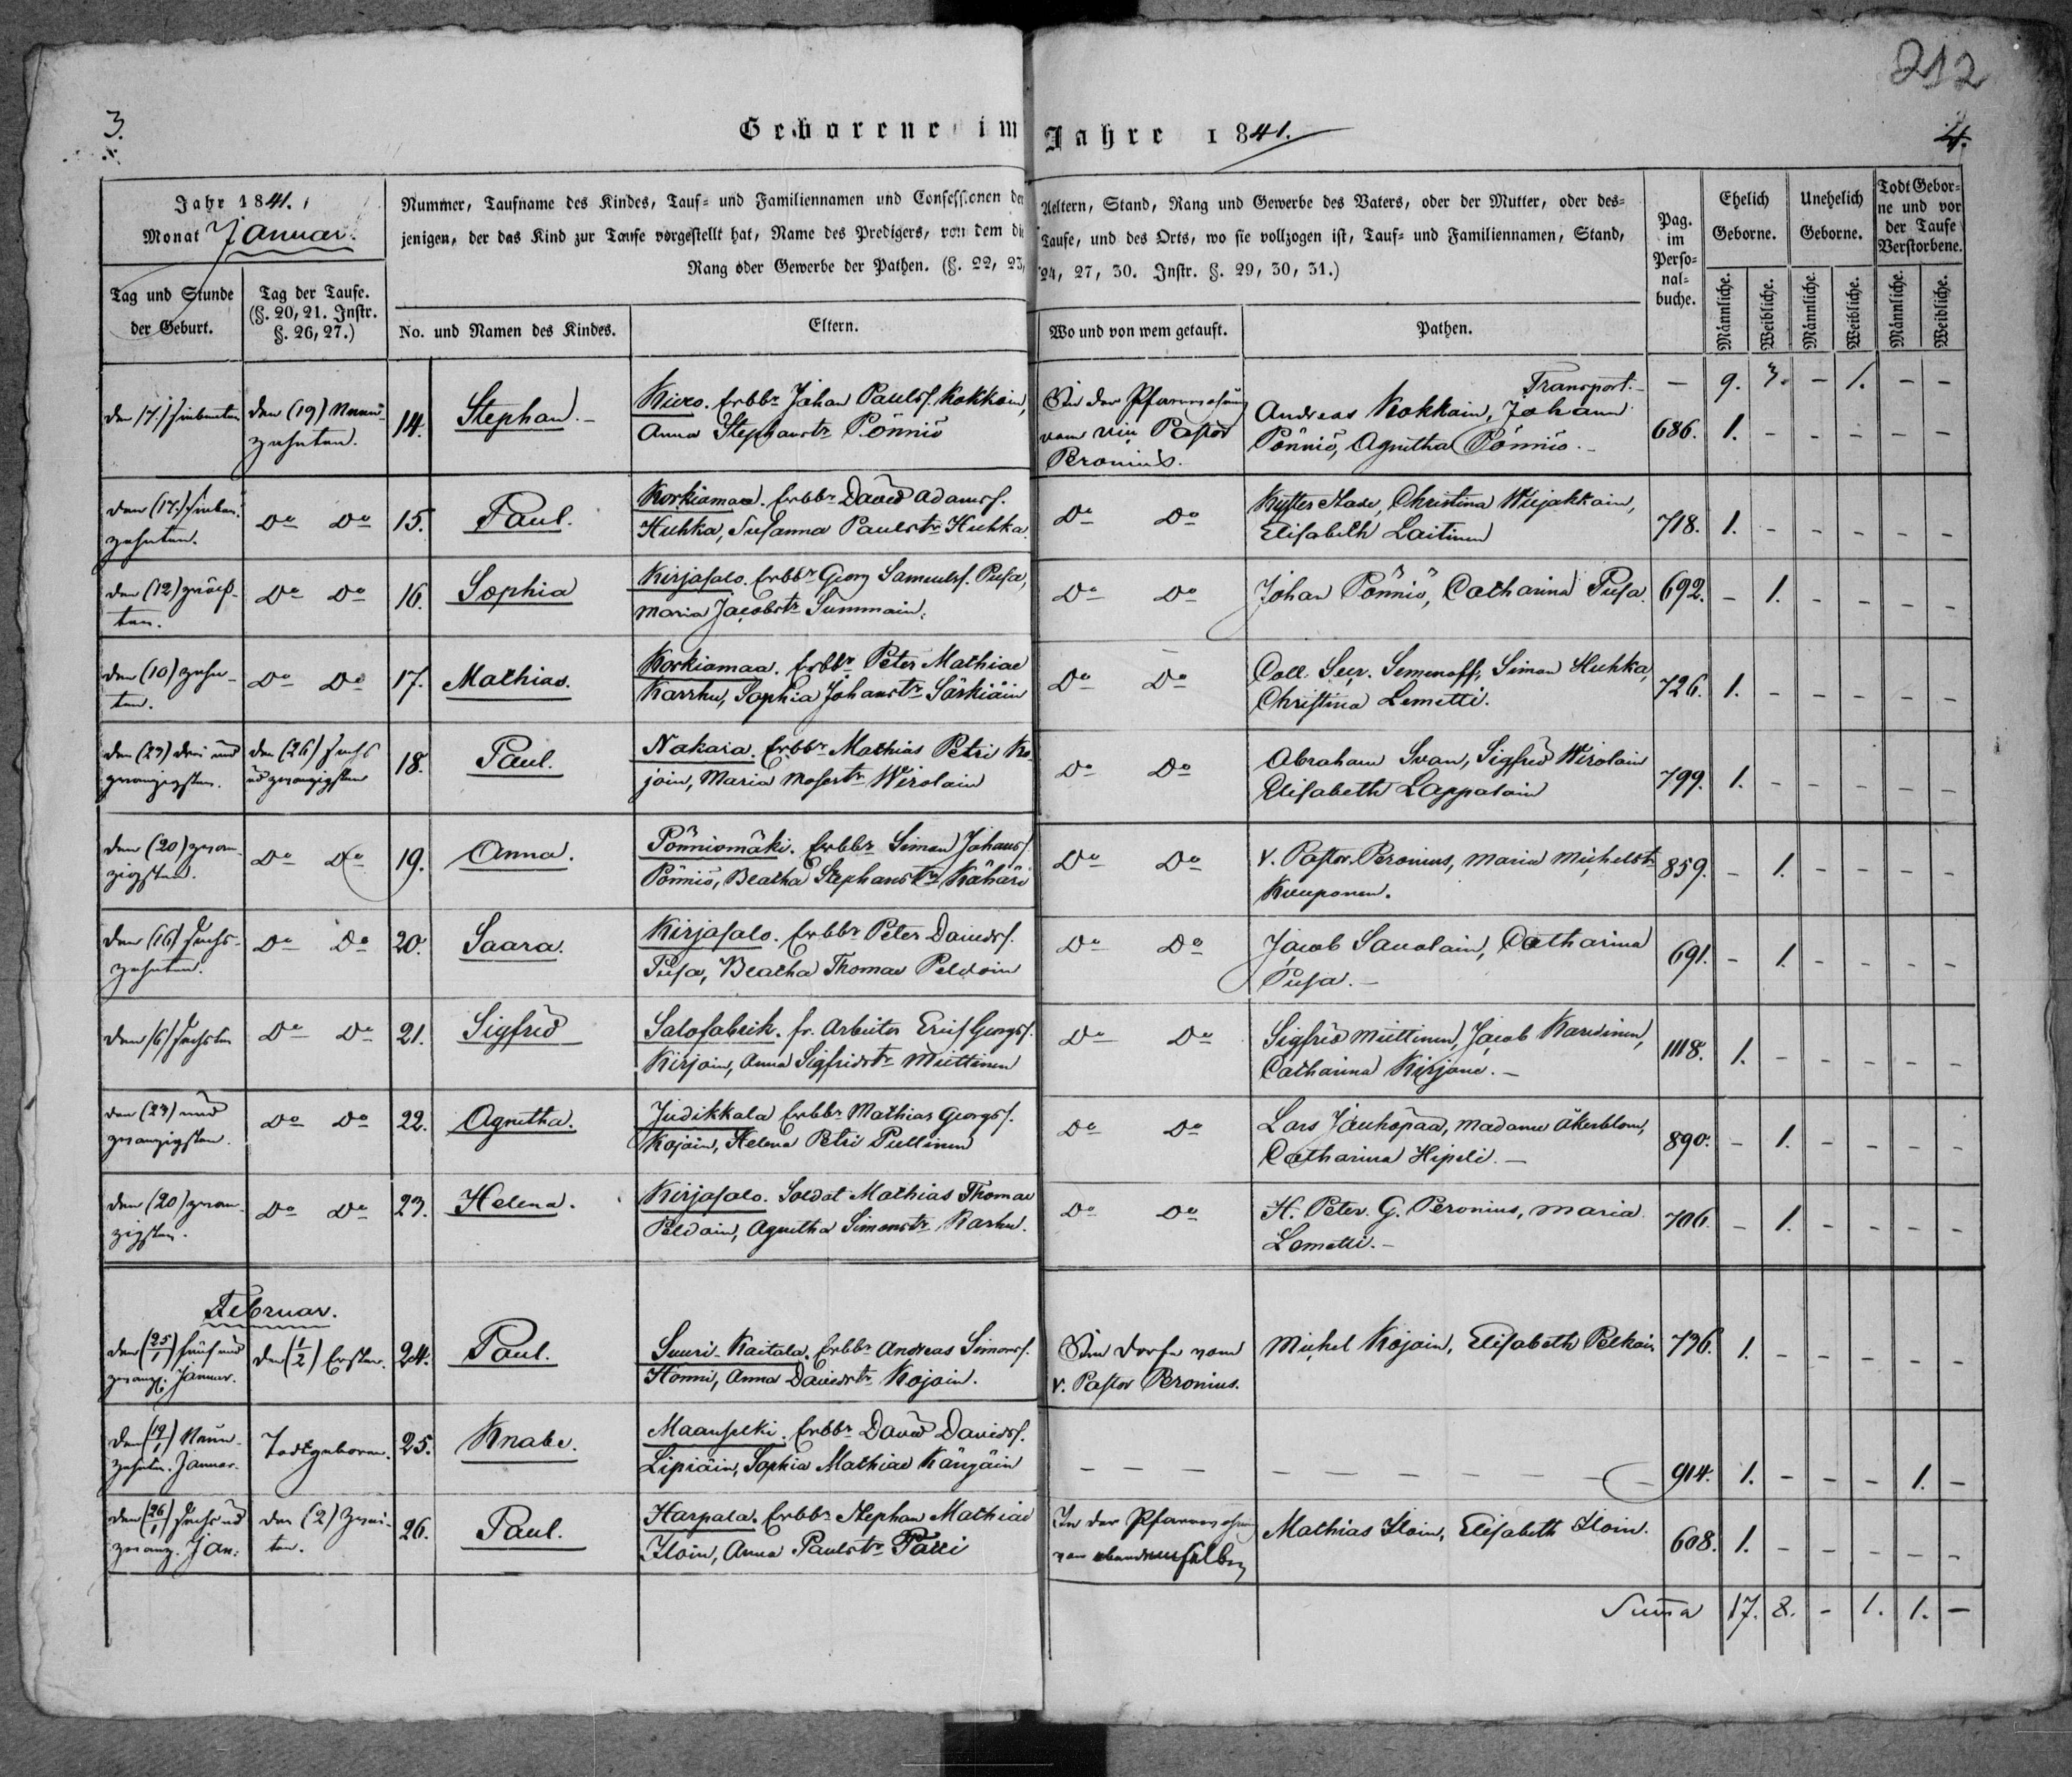 212
3.
Geborene im Jahre 1841.
4.
Jahr 1841.
Monat Januar.
Nummer, Taufname des Kindes, Tauf- und Familiennamen und Confessionen der Aeltern, Stand, Rang und Gewerbe des Vaters, oder der Mutter, oder des-
jenigen, der das Kind zur Taufe vorgestellt hat, Name des Predigers, von dem die Taufe, und des Orts, wo sie vollzogen ist, Tauf- und Familiennamen, Stand,
Rang oder Gewerbe der Pathen. (§. 22, 23, 24, 27, 30. Instr. §. 29, 30, 31.)
Pag.
im
Perso-
nal-
buche.
Ehelich
Geborne.
Unehelich
Geborne.
Todt Gebor-
ne und vor
der Taufe
Verstorbene.
Tag und Stunde
der Geburt.
Tag der Taufe.
(§. 20, 21. Instr.
§. 26, 27.)
No. und Namen des Kindes.
Eltern.
Wo und von wem getauft.
Pathen.
Männliche.
Weibliche.
Männliche.
Weibliche.
Männliche.
Weibliche.
Transport. — 9. 3. - 1. - -
den (17) siebenten
den (19) Neun-
zehnten.
14. Stephan.
Erbbr Johan Paulss. Kokkoin,
Anna Stephanstr Pönniö
In der
vom vic Pastor
Peronius.
Andreas Kokkain, Johann
Pönniö, Agnetha Pönniö.
686. 1. - - - - -
den (17.) sieben-
zehnten.
Do Do 15. Paul.
Korkiamaa. Erbbr David Adamss.
Huhka, Susanna Paulstr Huhka.
Do Do
Küster Stade, Christina Wiijakkain,
Elisabeth Laitinen
718. 1. - - - - -
den (12) zwölf-
ten.
Do Do 16. Sophia
Kirjasalo. Erbbr Georg Samuelss. Pusa,
Maria Jacobstr Summain.
Do Do
Johan Pönniö, Catharina Pusa.
692. - 1. - - - -
den (10) zehn-
ten.
Do Do 17. Mathias.
Korkiamaa. Erbbr Peter Mathiae
Karrhu, Sophia Johanstr Särkiäin
Do Do
Coll. Secr. Semenoff, Simon Huhka,
Christina Lemetti.
726. 1. - - - - -
den (23) drei und
zwanzigsten.
den (26) sechs
ud zwanzigsten
18. Paul.
Nakaia. Erbbr Mathias Petri Ko-
join, Maria Mosestr Wirolain
Do Do
Abraham Svan, Sigfrid Wirolain
Elisabeth Lappalain
799. 1. - - - - -
den (20) zwan-
zigsten.
Do Do 19. Anna.
Pönniomäki. Erbbr Simon Johanss
Pönniö, Beatha Stephanstr Kähäri
Do Do
v. Pastor Peronius, Maria Michelstr
Kuuponen.
859. - 1. - - - -
den (16) sechs-
zehnten.
Do Do 20. Saara.
Kirjasalo. Erbbr Peter Davidss.
Pusa, Beatha Thomae Peldoin
Do Do
Jacob Savolain, Catharina
Pusa. —
691. - 1. - - - -
den (6) sechsten
Do Do 21. Sigfrid
Salofabrik. fr. Arbeiter Erik Georgss.
Kirjoin, Anna Sigfridstr Miettinen
Do Do
Sigfrid Miettinen, Jacob Karvinen,
Catharina Kirjone. —
1118. 1. - - - - -
zwanzigsten.
Do Do 22. Agnetha.
Judikkala Erbbr Mathias Georgss.
Kojain, Helena Petri Pullinen
Do Do
Lars Jauhopää, Madame Åkerblom,
Catharina Hipeli. —
890. - 1. - - - -
den (20) zwan-
zigsten.
Do Do 23. Helena.
Kirjasalo. Soldat Mathias Thomae
Peldain, Agnetha Simonstr Karhu.
Do Do
H. Peter G. Peronius, Maria
Lemetti. —
706. - 1. - - - -
Februar.
den (25/1) fünf und
zwanz. Januar.
den (1/2) Ersten.
24. Paul.
Suuri-Kaitala. Erbbr Andreas Simonss.
Honni, Anna Davidstr Kojoin.
Im Dorfe vom
v. Pastor Peronius.
Michel Kojain, Elisabeth Pelkoin
736. 1. - - - - -
den (19/1) Neun-
zehnten. Januar.
Todtgeboren.
25. Knabe.
Maanselki. Erbbr David Davidss.
Lipiäin, Sophia Mathiae Kängäin
- - -
- - - - - - -
914. 1. - - - 1. -
den (26/1) sechs ud
zwanz. Jan:
den (2) Zwei-
ten.
26. Paul.
Harpala. Erbbr Stephan Mathiae
Iloin, Anna Paulstr Tatti
In der
von demselben
Mathias Iloin, Elisabeth Iloin.
608. 1. - - - - -
Summa 17. 8. - 1. 1. —